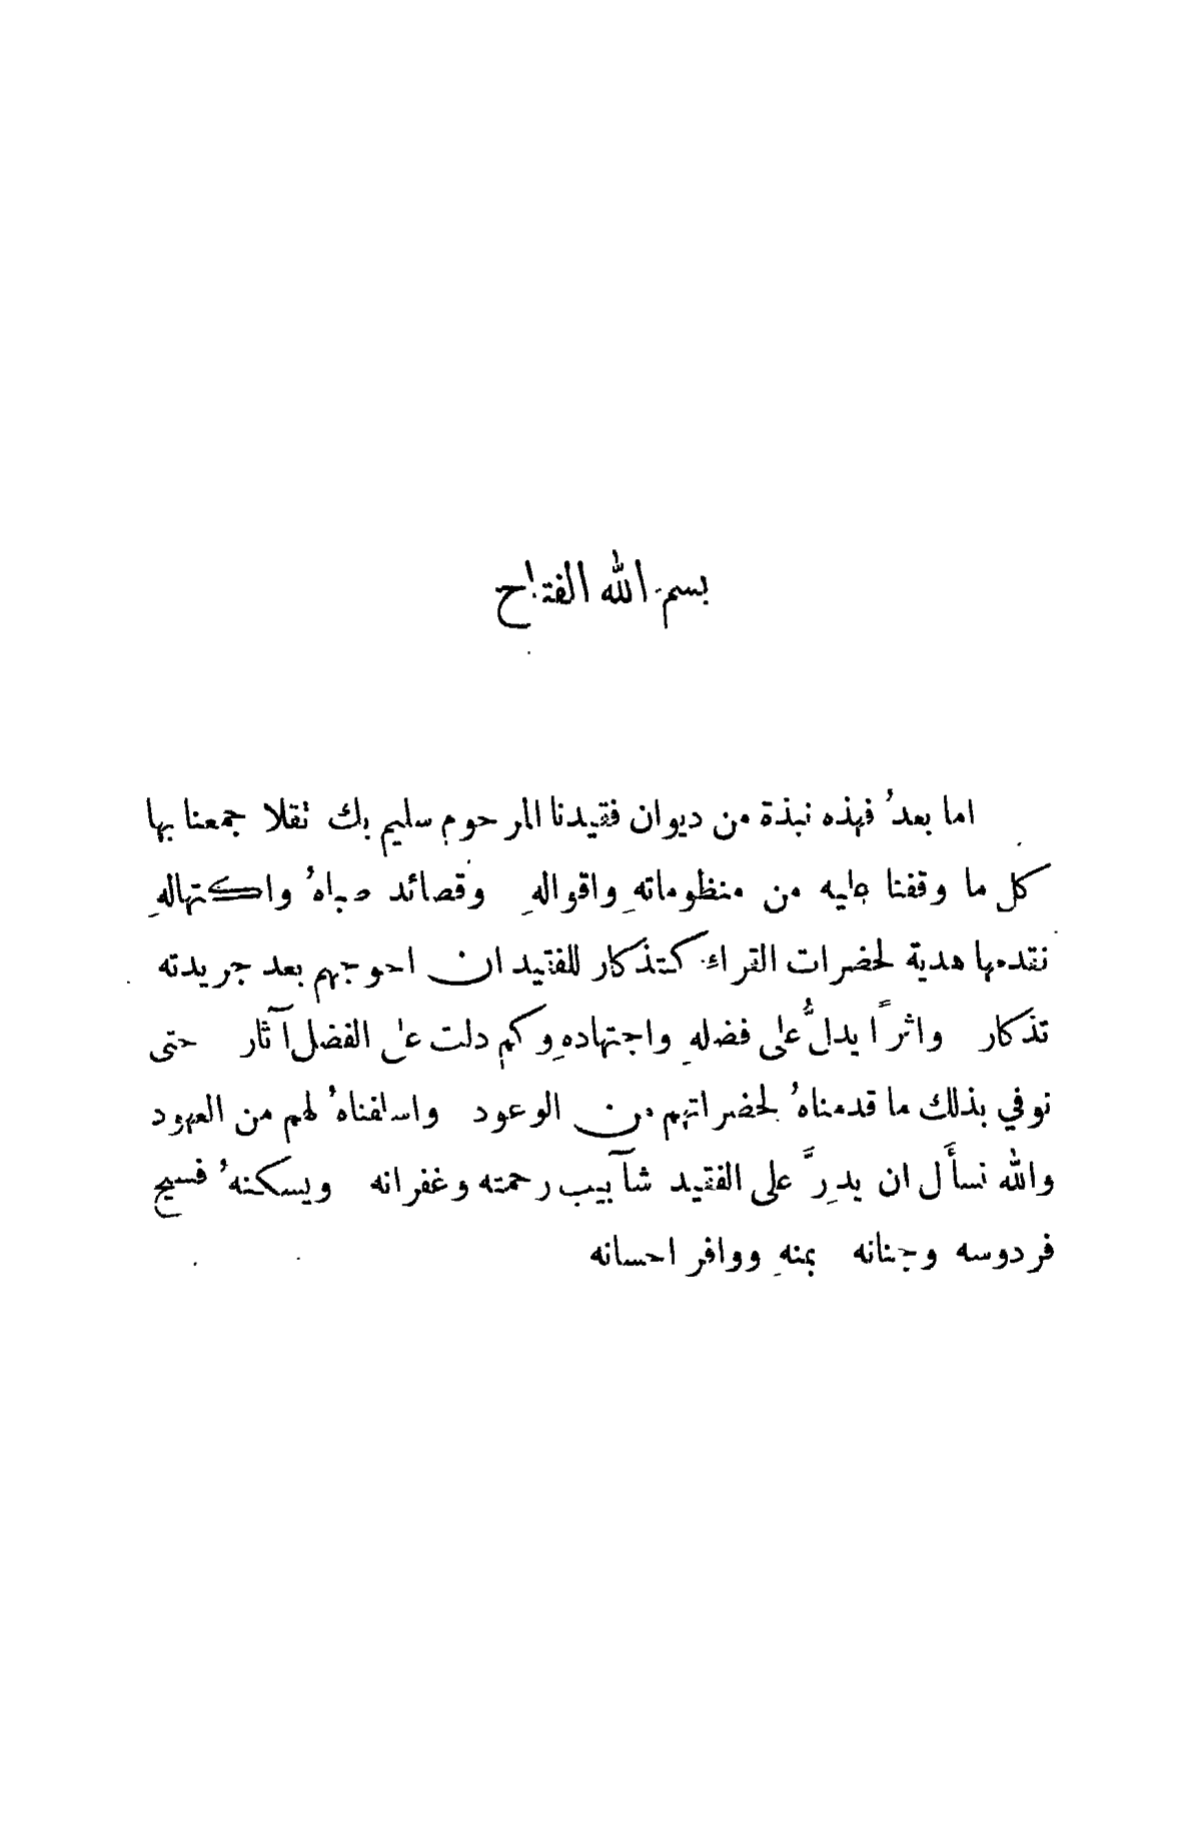 بسم الله الفتاح
اما بعدُ فهذه نبذة من ديوان فقيدنا المرحوم سليم بك تقلا جمعنا بها
كل ما وقفنا عليه من منظوماتهِ واقوالهِ وقصائد صباهُ واكتهالهِ
نقدمها هدية لحضرات القراء كتذكار للفقيد ان احوجهم بعد جريدته
تذكار واثراً يدلُّ على فضلهِ واجتهادهِ وكم دلت على الفضل آثار حتى
نوفي بذلك ما قدمناهُ لحضراتهم من الوعود واسلفناهُ لهم من العهود
والله نسأَل ان يدِرَّ على الفقيد شآبيب رحمته وغفرانه ويسكنهُ فسيح
فردوسه وجنانه بمنهِ ووافر احسانه